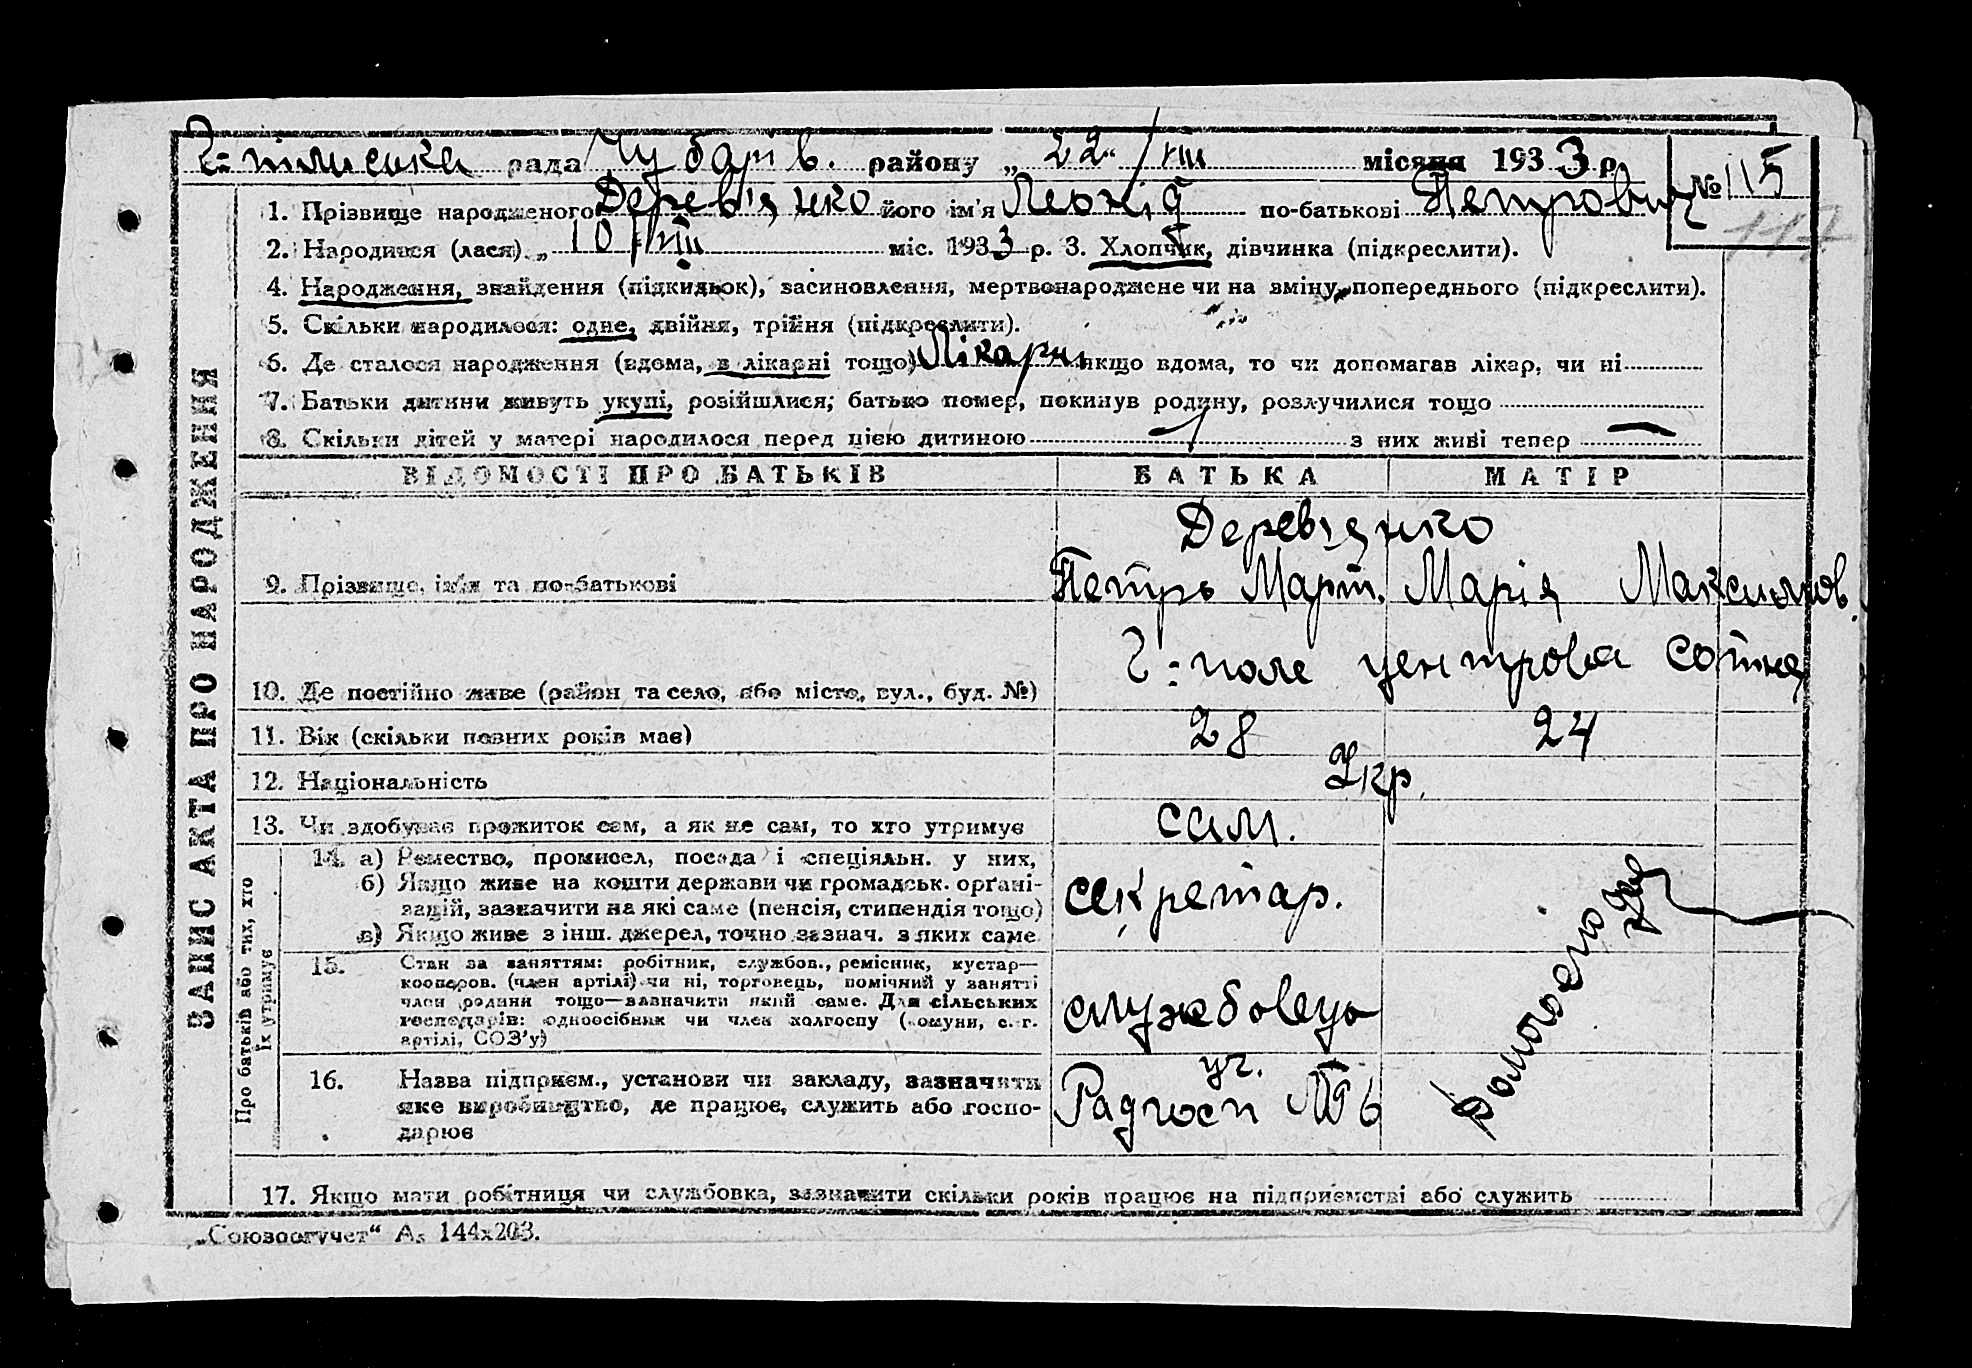 Г-пільська рада Чубарів. району „22“/VIII місяця 1933 р. № 115
117
1. Прізвище народженого Дерев'янко його ім'я Леонід по-батькові Петрович
2. Народився (лася) „10/VIII міс. 1933 р. 3. Хлопчик, дівчинка (підкреслити).
4. Народження, знайдення (підкидьок), засиновлення, мертвонароджене чи на зміну попереднього (підкреслити).
5. Скільки народилося: одне, двійня, трійня (підкреслити).
6. Де сталося народження (вдома, в лікарні тощо) Лікарні якщо вдома, то чи допомагав лікар, чи ні
7. Батьки дитини живуть укупі, розійшлися; батько помер, покинув родину, розлучилися тощо
8. Скільки дітей у матері народилося перед цією дитиною 1 з них живі тепер —
ЗАПИС АКТА ПРО НАРОДЖЕННЯ
ВІДОМОСТІ ПРО БАТЬКІВ БАТЬКА МАТІР
Дерев'янко
9. Прізвище, ім'я та по-батькові Петрь Март. Марія Максимов.
10. Де постійно живе (район та село, або місто, вул., буд. №) Г: поле центрова сотня
11. Вік (скільки повних років має) 28 24
12. Національність Укр.
13. Чи здобуває прожиток сам, а як не сам, то хто утримує сам.
Про батьків або тих, хто їх утримує
14. а) Ремество, промисел, посада і спеціяльн. у них,
б) Якщо живе на кошти держави чи громадськ. орґані-
зацій, зазначити на які саме (пенсія, стипендія тощо) секретар.
в) Якщо живе з інш. джерел, точно зазнач. з яких саме
15. Стан за заняттям: робітник, службов., ремісник, кустар—
кооперов. (член артілі) чи ні, торговець, помічний у занятті
член родини тощо—зазначити який саме. Для сільських
господарів: одноосібник чи член колгоспу (комуни, с.-г.
артілі, СОЗ'у) службовець
16. Назва підприєм., установи чи закладу, зазначити
яке виробництво, де працює, служить або госпо-
дарює уч. Радгосп № 6
17. Якщо мати робітниця чи службовка, зазначити скільки років працює на підприємстві або служить
„Союзоргучет“ А₅ 144х203.